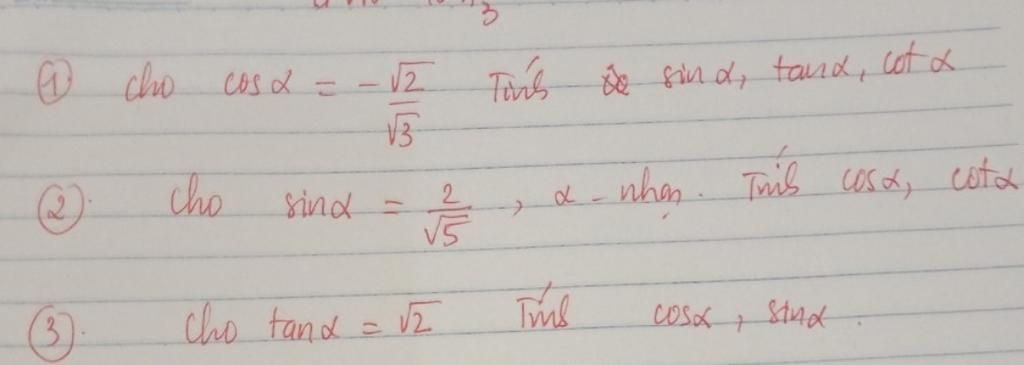 ① Cho cos α = -√2/√3 Tính sin α, tan α, cot α
②. Cho sin α = 2/√5, α - nhọn. Tính cos α, cot α
③. Cho tan α = √2 Tính cos α, sin α.